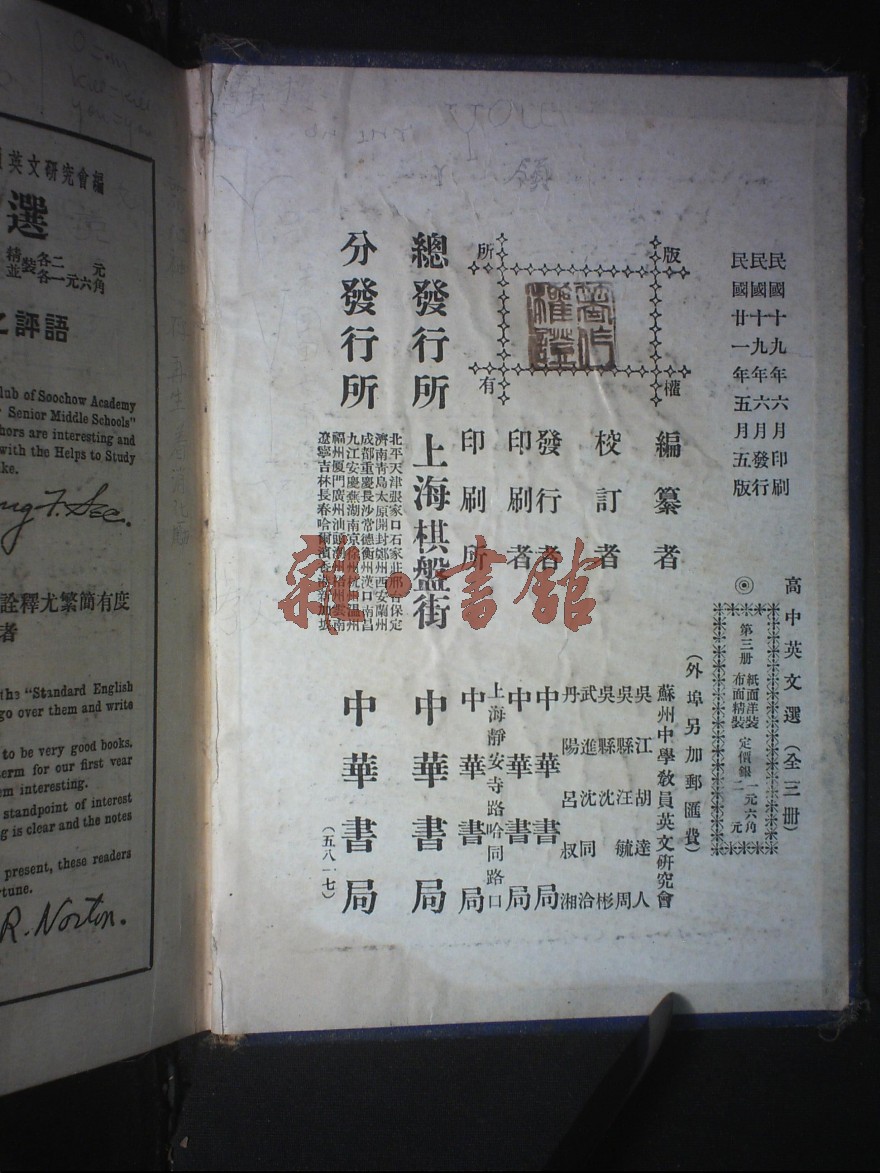 民國十九年六月印刷
民國十九年六月發行
民國廿一年五月五版
高中英文選（全三册）
◎
第三册 紙面洋裝 定價銀 一元六角
布面精裝 二元
（外埠另加郵匯費）
版權所有
編纂者 蘇州中學教員英文研究會
校訂者
吳江胡達人
吳縣汪毓周
吳縣沈彬
武進沈同洽
丹陽呂叔湘
發行者 中華書局
印刷者 中華書局
上海靜安寺路哈同路口
印刷所 中華書局
總發行所 上海棋盤街 中華書局
分發行所
北平天津張家口石家莊邢台保定
濟南青島太原開封鄭州西安蘭州
成都重慶長沙常德衡州漢口南昌
九江安慶蕪湖南京徐州杭州溫州
福州厦門廣州汕頭潮州梧州雲南
遼寧吉林長春哈爾濱
中華書局
（五八一七）
書館
英文研究會編
選
精裝各二元
並裝各一元六角
評語
lub of Soochow Academy
Senior Middle Schools"
hors are interesting and
with the Helps to Study
ke.
詮釋尤繁簡有度
者
the "Standard English
go over them and write
to be very good books.
term for our first year
em interesting.
standpoint of interest
g is clear and the notes
present, these readers
rtune.
R. Norton.